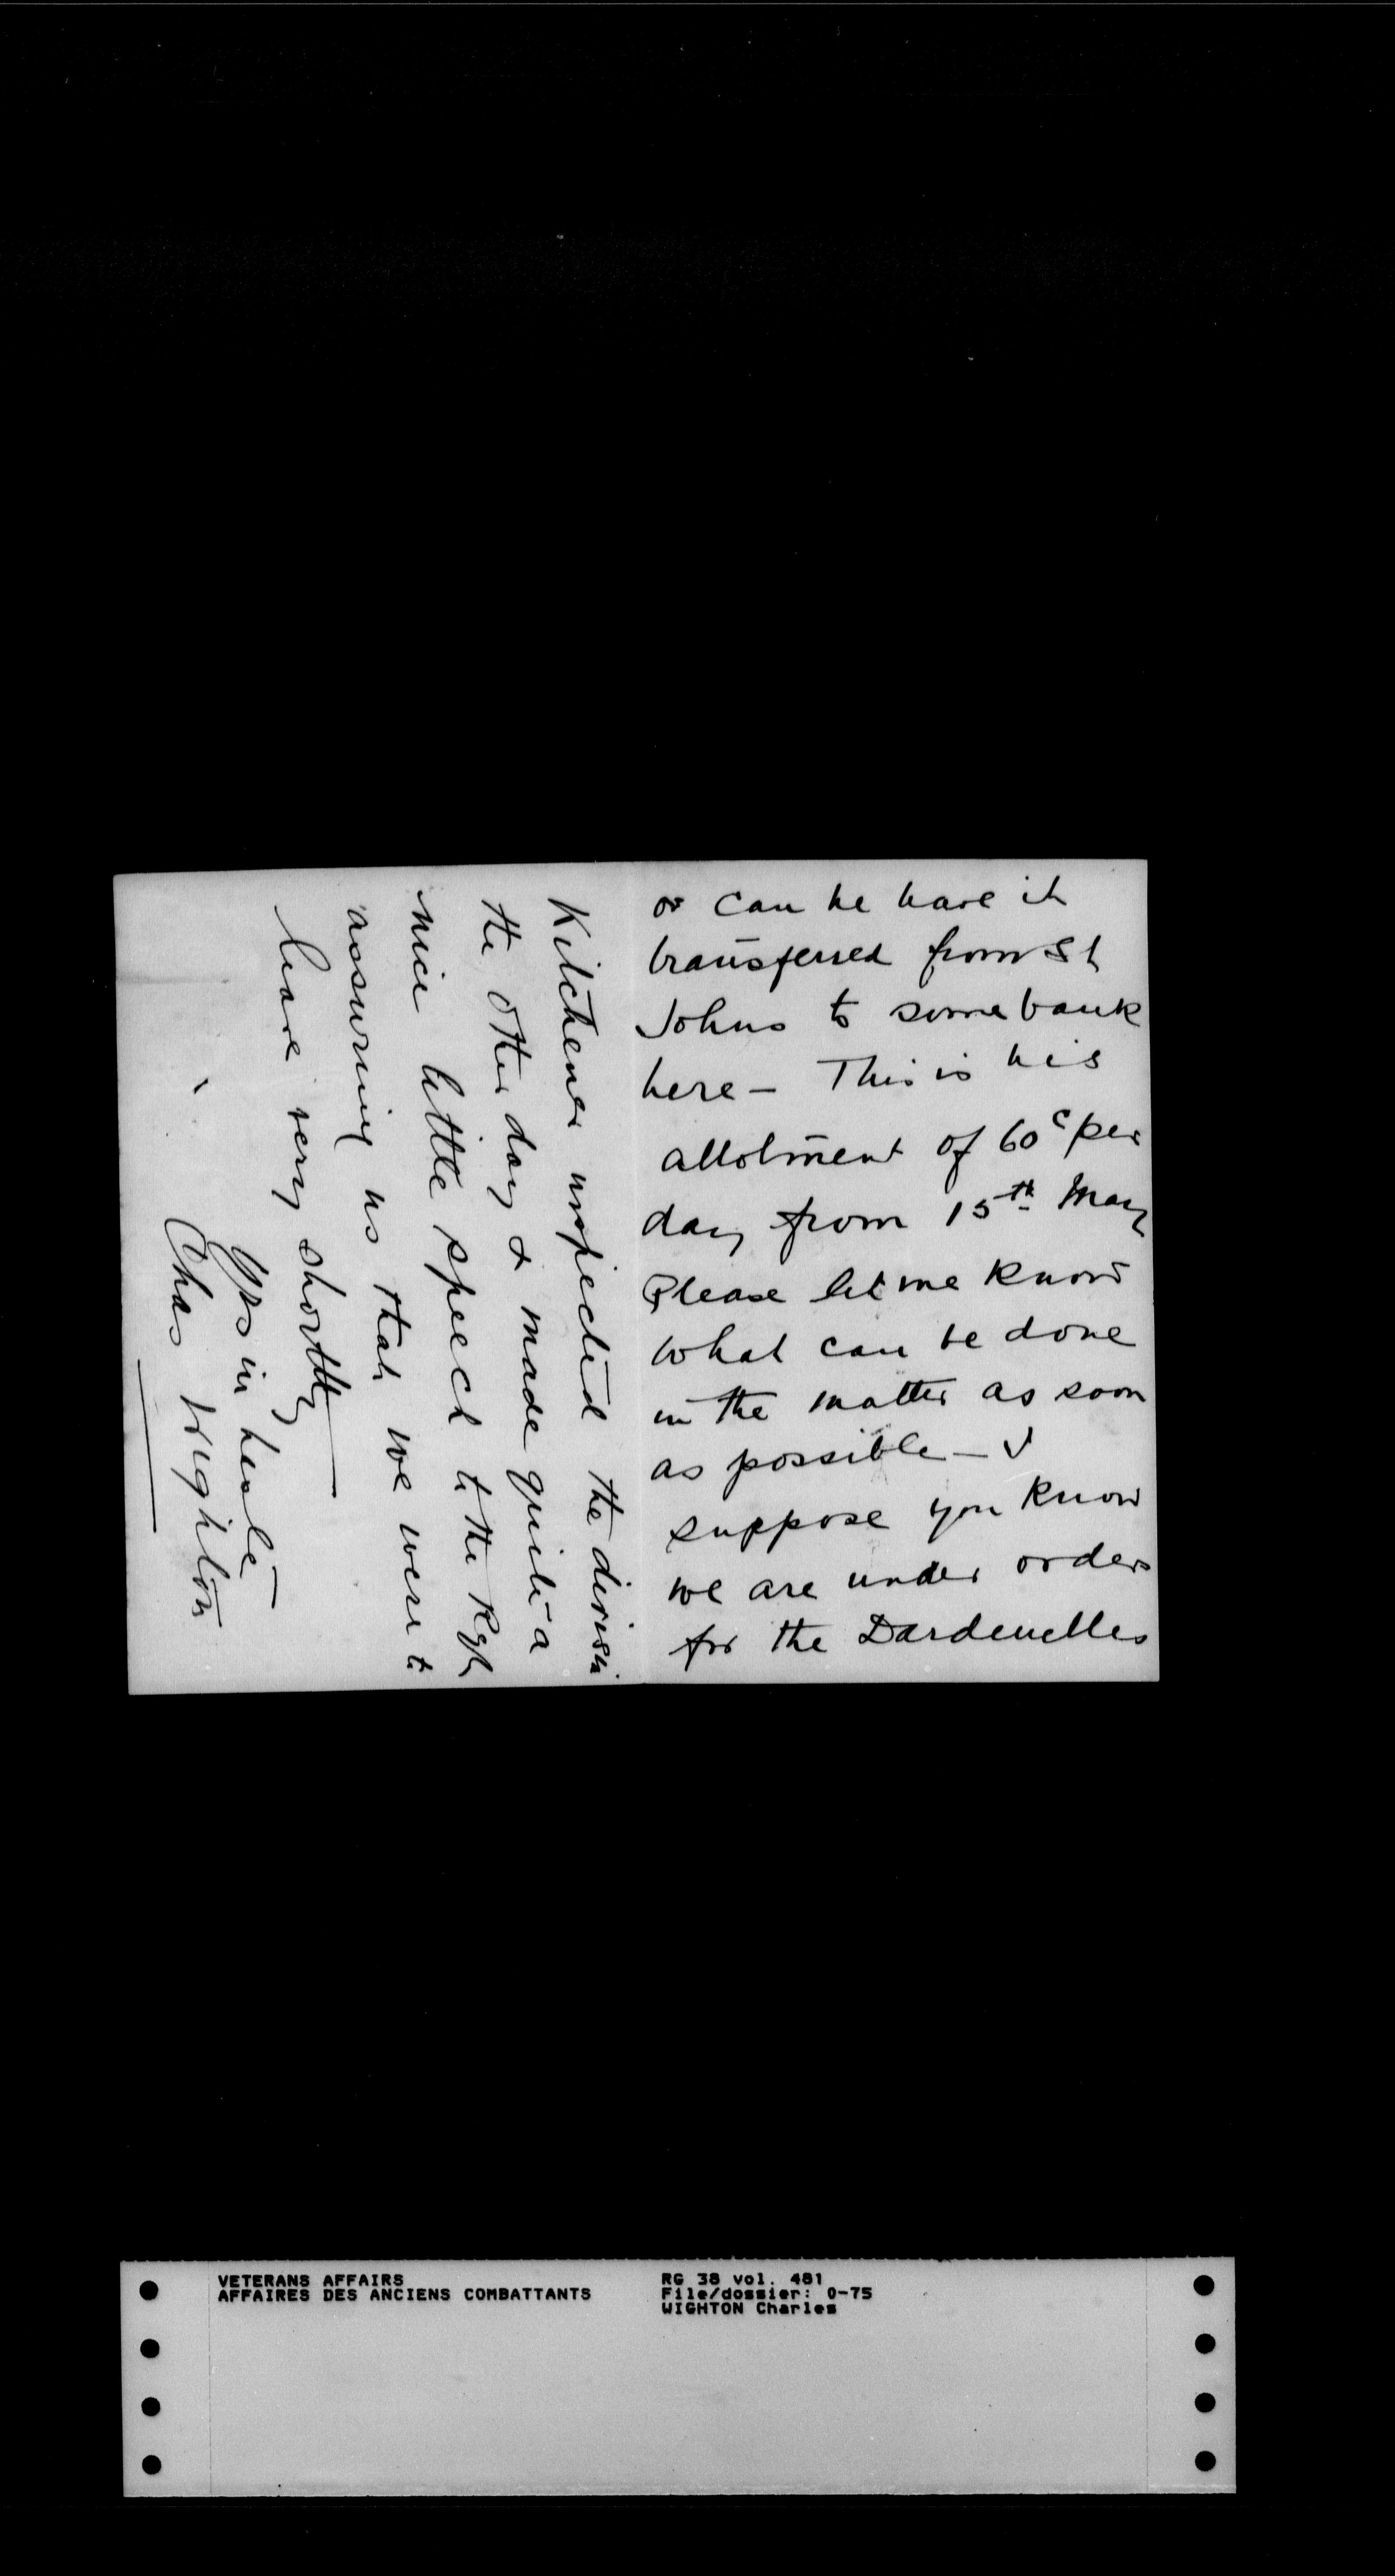 or can he have it
transferred from St
Johns to some bank
here - This is his
allotment of 60c per
day from 15th May
Please let me know
what can be done
in the matter as soon
as possible - I
suppose you know
we are under orders
for the Dardenelles
Kitchener inspected the divisi
the other day & made quite a
nice little speech to the Rgt
assuring us that we were to
leave very shortly
Yrs in haste
Chas Wighton
VETERANS AFFAIRS
AFFAIRES DES ANCIENS COMBATTANTS
RG 38 vol. 481
File/dossier: 0-75
WIGHTON Charles